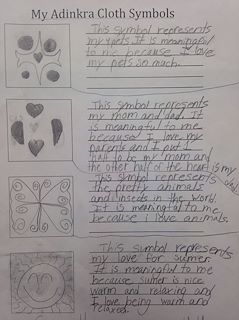 My Adinkra Cloth Symbols
This symbol represents
my pets. It is meaningful
to me because I love
my pets so much.
This symbol represents
my mom and dad. It
is meaningful to me
because I love my
parents and I put it
half to be my mom and
the other half of the heart is my
dad
This symbol represents
the pretty animals
and insects in the world.
It is meaningful to me
because i love animals.
This sumbol represents
my love for sumer.
It is meaningful to me
because sumer is nice
warm and relaxing and
I love being warm and
relaxed.